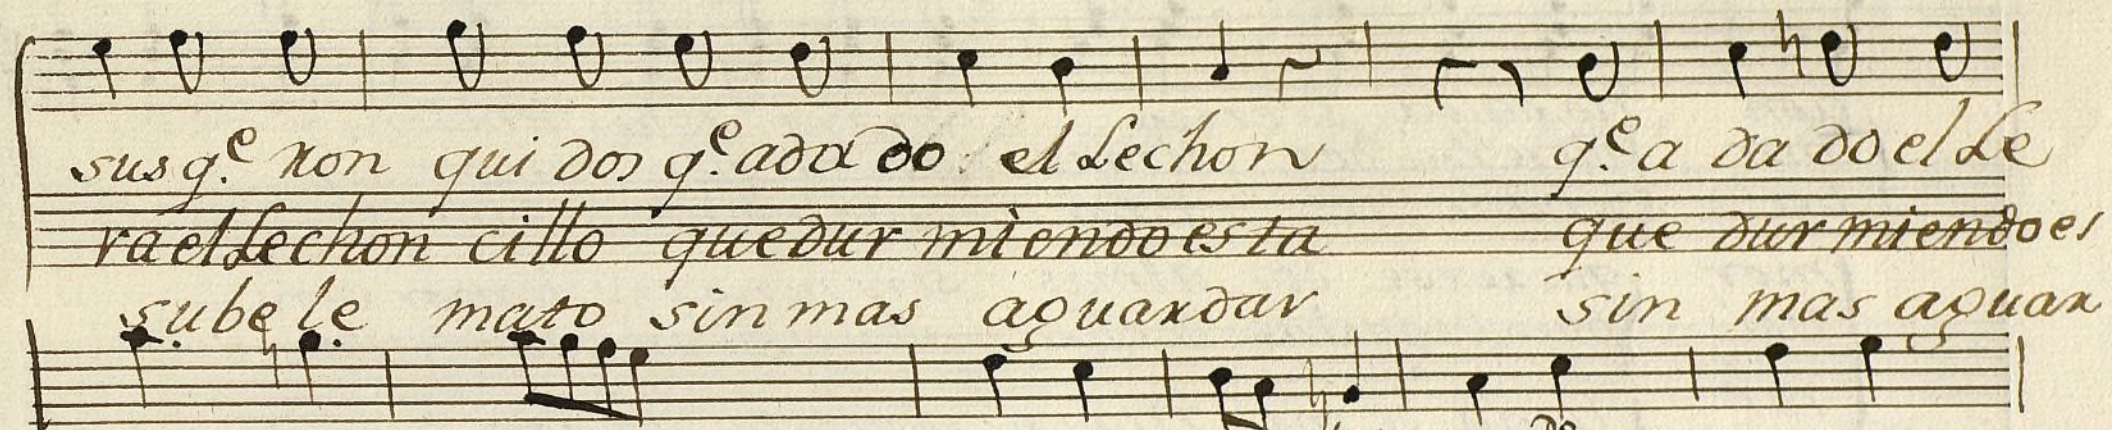 sus q.e ron qui dos q.e a da do el Lechon q.e a da do el Le
ra el Lechon cillo que dur miendo esta que dur miendo es
sube le mato sin mas aguardar sin mas aguar